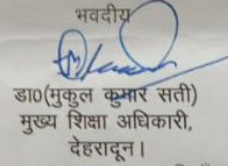 भवदीय
डा0(मुकुल कुमार सती)
मुख्य शिक्षा अधिकारी,
देहरादून।